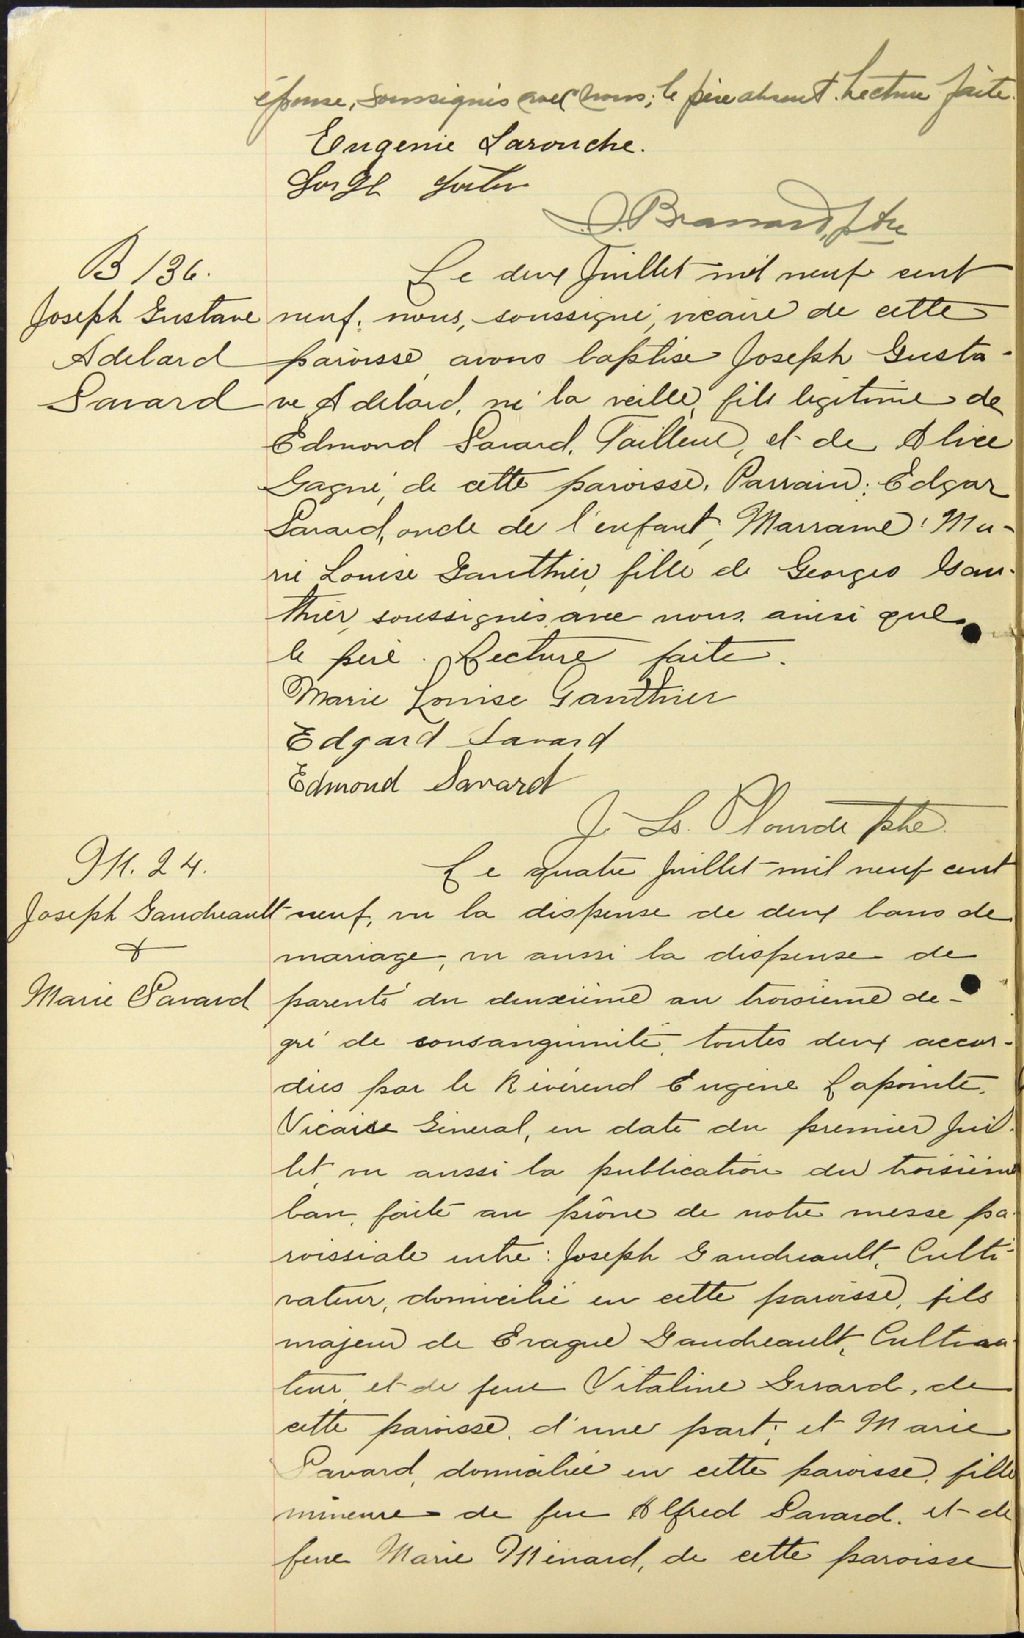 épouse, soussignés avec nous; le père absent. Lecture faite.
Eugenie Larouche.
J. Brassard, ptre
B 136.
Joseph Gustave
Adelard
Savard
Le deux Juillet mil neuf cent
neuf, nous, soussigné, vicaire de cette
paroisse, avons baptisé Joseph Gusta-
ve Adelard, né la veille, fils légitime de
Edmond Savard, Tailleur, et de Alice
Gagné, de cette paroisse. Parrain: Edgar
Savard, oncle de l'enfant, Marraine: Ma-
rie Louise Gauthier, fille de Georges Gau-
thier, soussignés avec nous ainsi que
le père. Lecture faite.
Marie Louise Gauthier
Edgard Savard
Edmond Savard
J. Ls. Plourde ptre.
M. 24.
Joseph Gaudreault
&
Marie Savard
Le quatre Juillet mil neuf cent
neuf, vu la dispense de deux bans de
mariage, vu aussi la dispense de
parenté du deuxième au troisième de-
gré de consanguinité, toutes deux accor-
dées par le Révérend Eugène Lapointe,
Vicaire Général, en date du premier Juil-
let, vu aussi la publication du troisième
ban, faite au prône de notre messe pa-
roissiale entre: Joseph Gaudreault, Culti-
vateur, domicilié en cette paroisse, fils
majeur de Gaudreault, Cultiva-
teur, et de feue Vitaline Girard, de
cette paroisse, d'une part; et Marie
Savard, domiciliée en cette paroisse, fille
mineure de feu Alfred Savard, et de
feue Marie Ménard, de cette paroisse